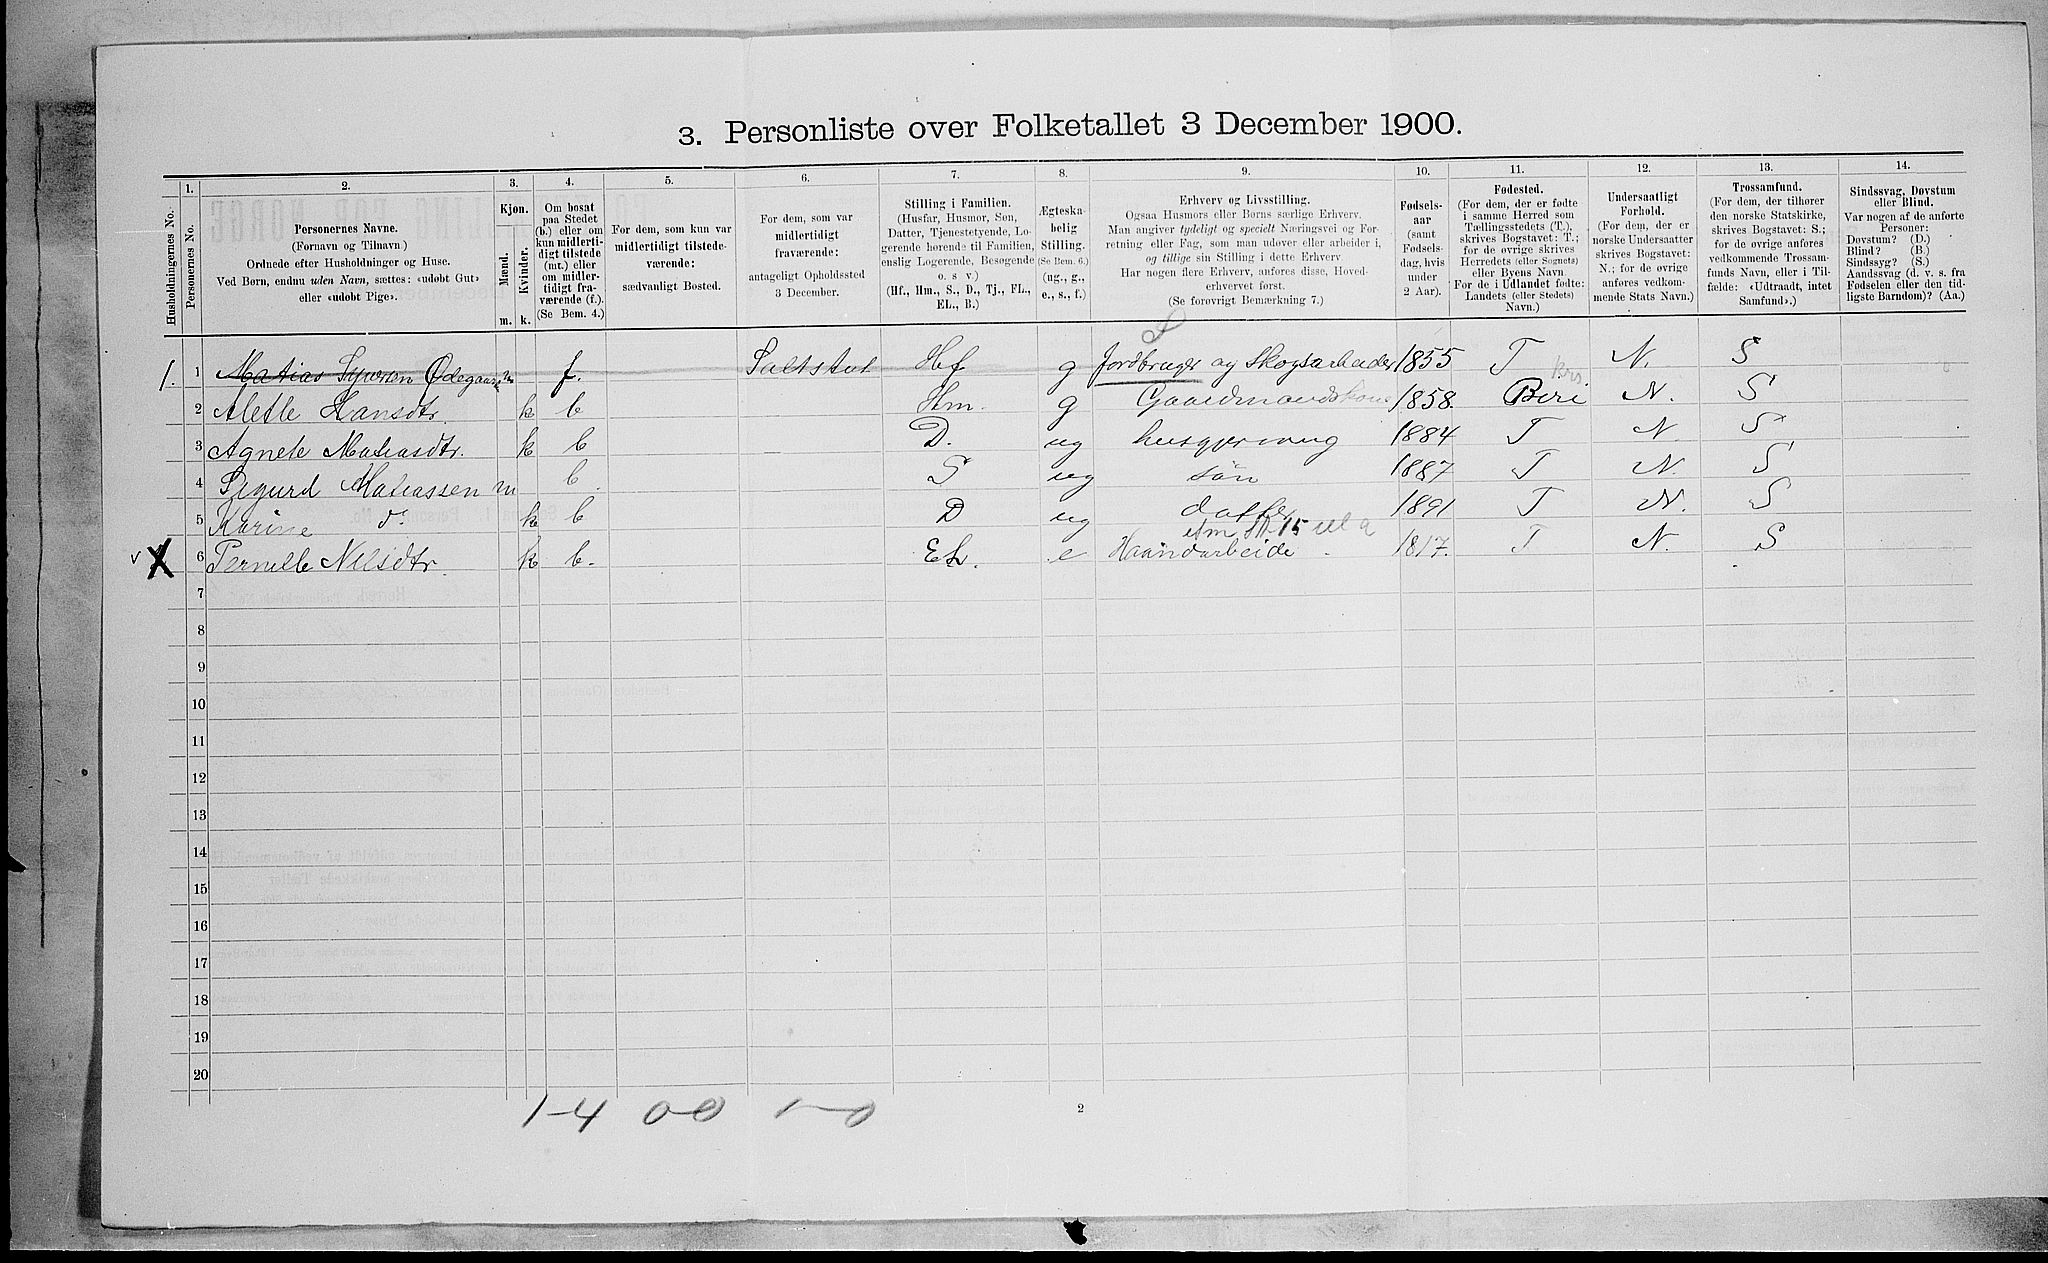 3. Personliste over Folketallet 3 December 1900.
Husholdningernes No.
1.
Personernes No.
2.
Personernes Navne.
(Fornavn og Tilnavn.)
Ordnede efter Husholdninger og Huse.
Ved Børn, endnu uden Navn, sættes: «udøbt Gut»
eller «udøbt Pige».
3.
Kjøn.
Mænd.
Kvinder.
m. k.
4.
Om bosat
paa Stedet
(b.) eller om
kun midlerti-
digt tilstede
(mt.) eller
om midler-
tidigt fra-
værende (f.).
(Se Bem. 4.)
5.
For dem, som kun var
midlertidigt tilstede-
værende:
sædvanligt Bosted.
6.
For dem, som var
midlertidigt
fraværende:
antageligt Opholdssted
3 December.
7.
Stilling i Familien.
(Husfar, Husmor, Søn,
Datter, Tjenestetyende, Lo-
gerende hørende til Familien,
enslig Logerende, Besøgende
o. s v.)
(Hf., Hm., S., D., Tj., FL.,
EL., B.)
8.
Ægteska-
belig
Stilling.
(Se Bem. 6.)
(ug., g.,
e., s., f.)
9.
Erhverv og Livsstilling.
Ogsaa Husmors eller Børns særlige Erhverv.
Man angiver tydeligt og specielt Næringsvei og For-
retning eller Fag, som man udøver eller arbeider i,
og tillige sin Stilling i dette Erhverv.
Har nogen flere Erhverv, anføres disse, Hoved-
erhvervet først.
(Se forøvrigt Bemærkning 7.)
10.
Fødsels-
aar
(samt
Fødsels-
dag, hvis
under
2 Aar).
11.
Fødested.
(For dem, der er fødte
i samme Herred som
Tællingsstedets (T.),
skrives Bogstavet: T.;
for de øvrige skrives
Herredets (eller Sognets)
eller Byens Navn.
For de i Udlandet fødte:
Landets (eller Stedets)
Navn.)
12.
Undersaatligt
Forhold.
(For dem, der er
norske Undersaatter
skrives Bogstavet:
N.; for de øvrige
anføres vedkom-
mende Stats Navn.)
13.
Trossamfund.
(For dem, der tilhører
den norske Statskirke,
skrives Bogstavet: S.;
for de øvrige anføres
vedkommende Trossam-
funds Navn, eller i Til-
fælde: «Udtraadt, intet
Samfund».)
14.
Sindssvag, Døvstum
eller Blind.
Var nogen af de anførte
Personer:
Døvstum? (D.)
Blind? (B.)
Sindssyg? (S.)
Aandssvag (d. v. s. fra
Fødselen eller den tid-
ligste Barndom)? (Aa.)
1. 1 Matias Syversen Ødegaard m f. Saltstut Hf g Jordbruger og Skogsarbeider 1855 T N. S
2 Aletle Hansdtr. k b Hm. g Gaardmandskone 1858. Biri krs. N. S
3 Agnete Matiasdtr. k b D. ug husgjerning 1884 T N. S
4 Sigurd Matiassen m b. S ug søn 1887 T N. S
5 Karine do k b D ug datter 1891 T N. S
15
X 6 Pernille Nilsdtr. k b. EL. e Haandarbeide 1817. T N. S
7
8
9
10
11
12
13
14
15
16
17
18
19
20
1-4 0-0 1-0
2